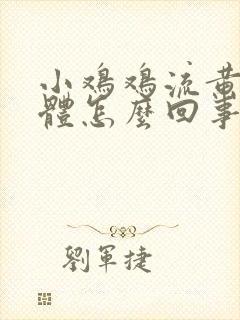 小鸡鸡流黄
體怎麼回事
劉軍捷